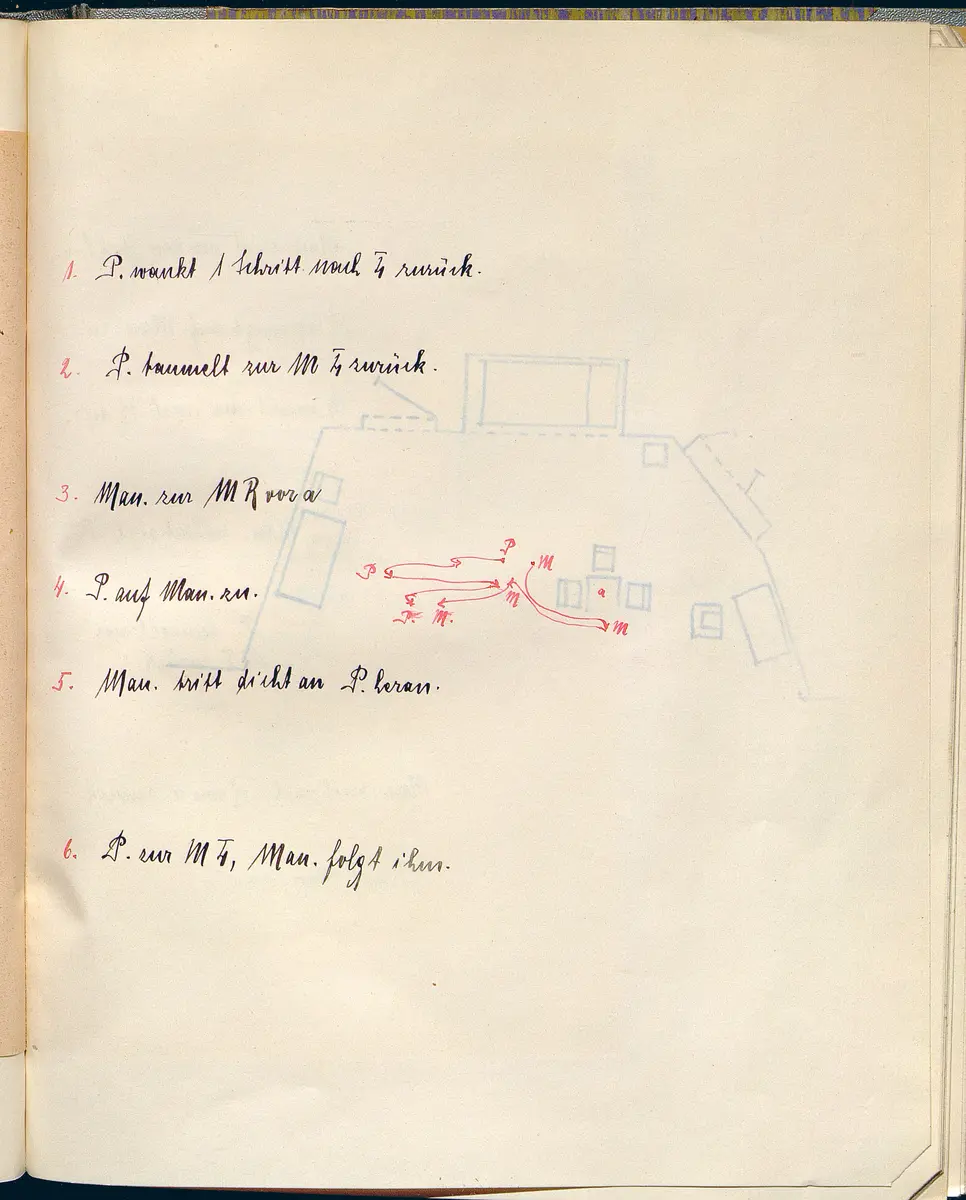 1. P. wankt 1 Schritt nach L zurück.
2. P. taumelt zur M L zurück.
3. Man. zur M R vor a
4. P. auf Man. zu.
5. Man. tritt dicht an P. heran.
6. P. zur M L, Man. folgt ihm.
P M
P
M a
P. M. M